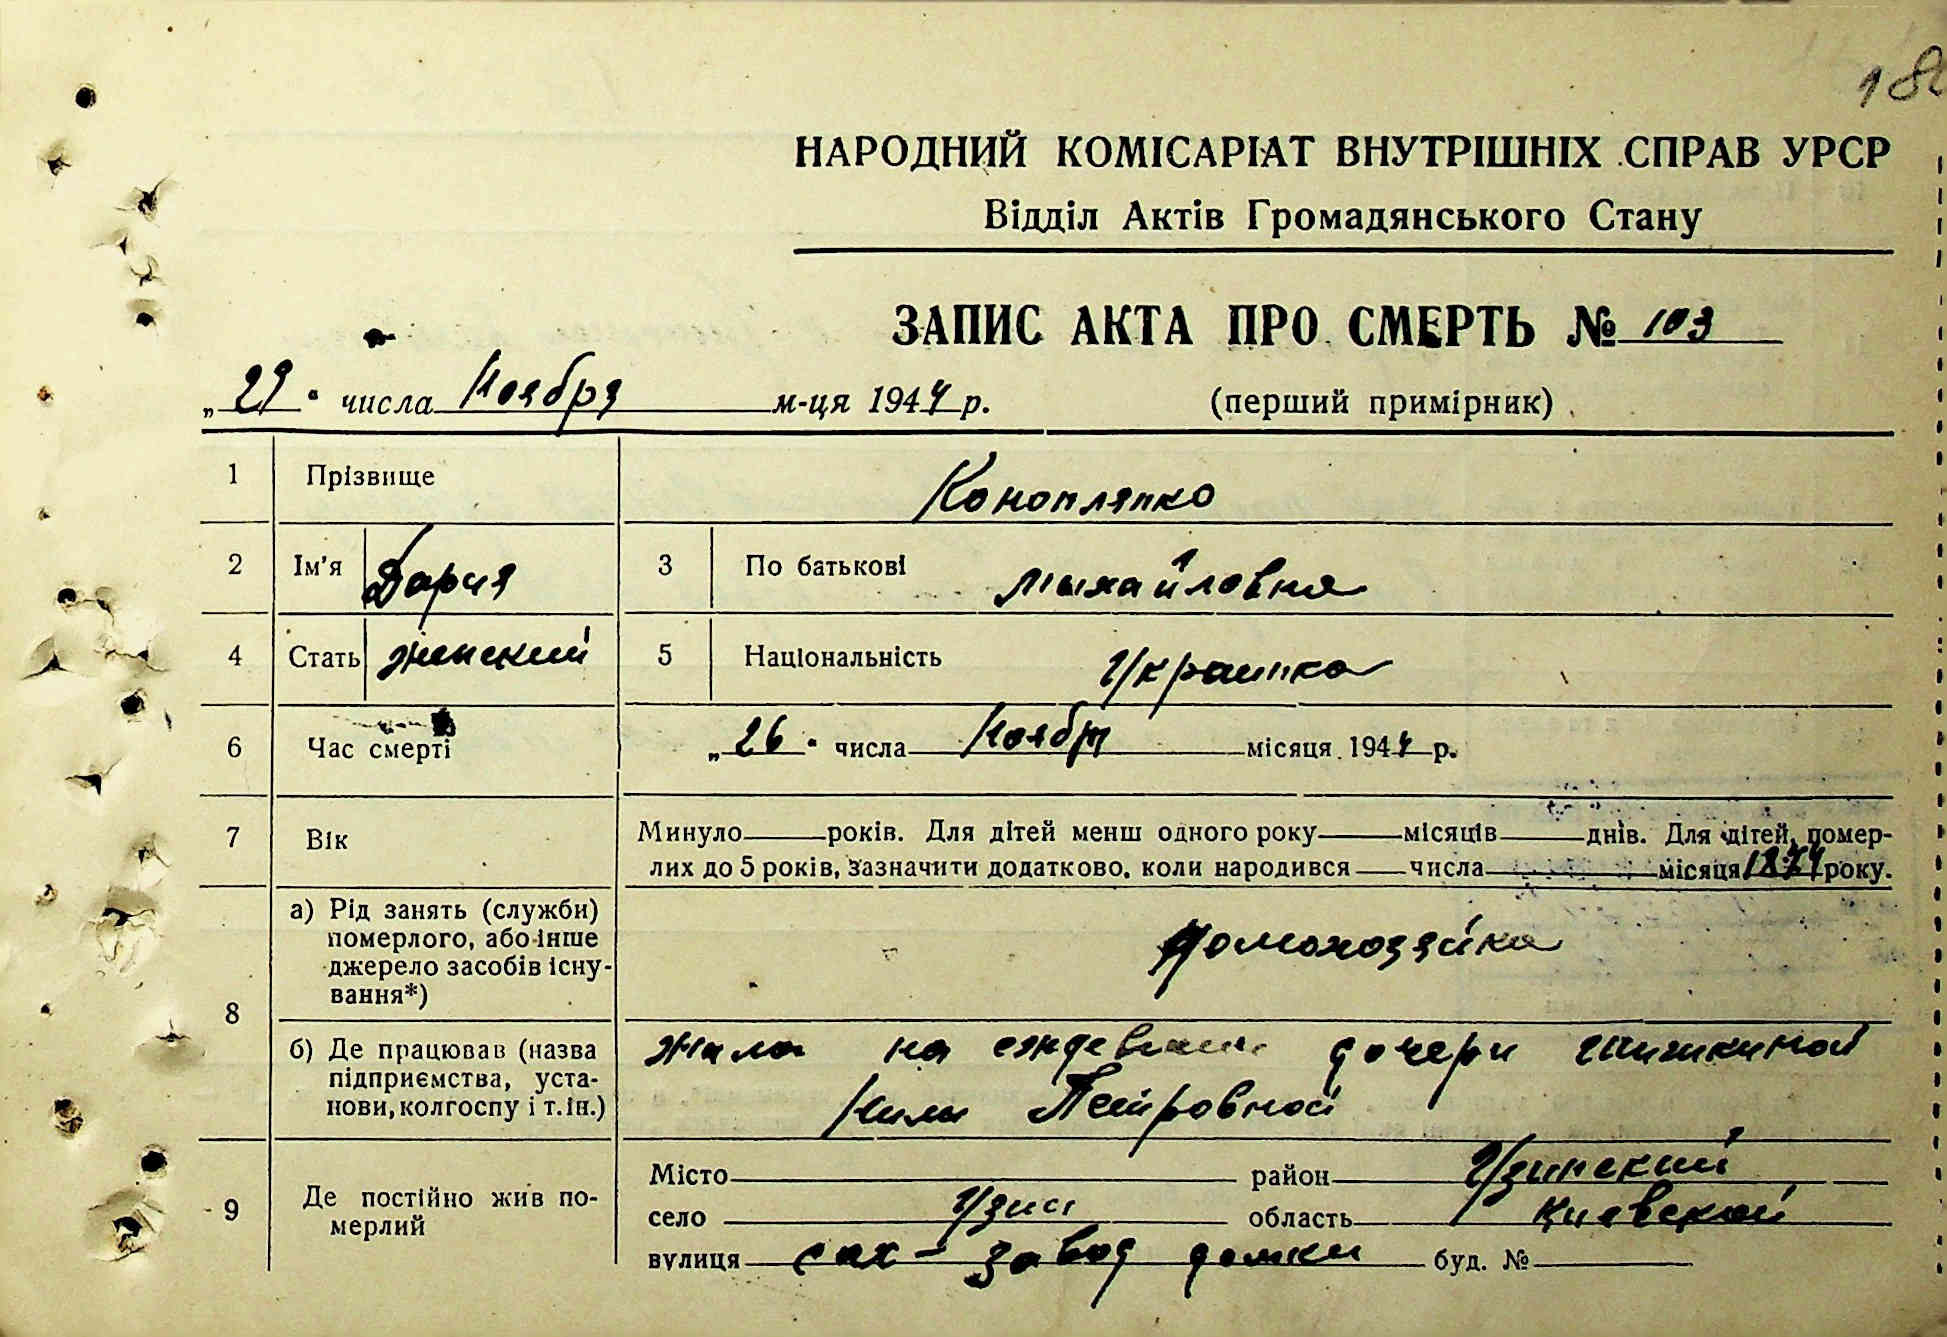 18
НАРОДНИЙ КОМІСАРІАТ ВНУТРІШНІХ СПРАВ УРСР
Відділ Актів Громадянського Стану
ЗАПИС АКТА ПРО СМЕРТЬ № 103
„29“ числа Ноября м-ця 1944 р. (перший примірник)
1 Прізвище Коноплянко
2 Ім'я Дария 3 По батькові Михайловна
4 Стать женский 5 Національність Украинка
6 Час смерті „26“ числа Ноября місяця 1944 р.
7 Вік Минуло — років. Для дітей менш одного року — місяців — днів. Для дітей, помер-
лих до 5 років, зазначити додатково, коли народився — числа — місяця 1874 року.
8 а) Рід занять (служби) померлого, або інше джерело засобів існу-вання*) Домохозяйка
б) Де працював (назва підприємства, уста-нови, колгоспу і т. ін.) жила на дочери
Петровной
9 Де постійно жив по-мерлий Місто — район Узинский
село Узин область Киевской
вулиця сах-завод домки буд. №